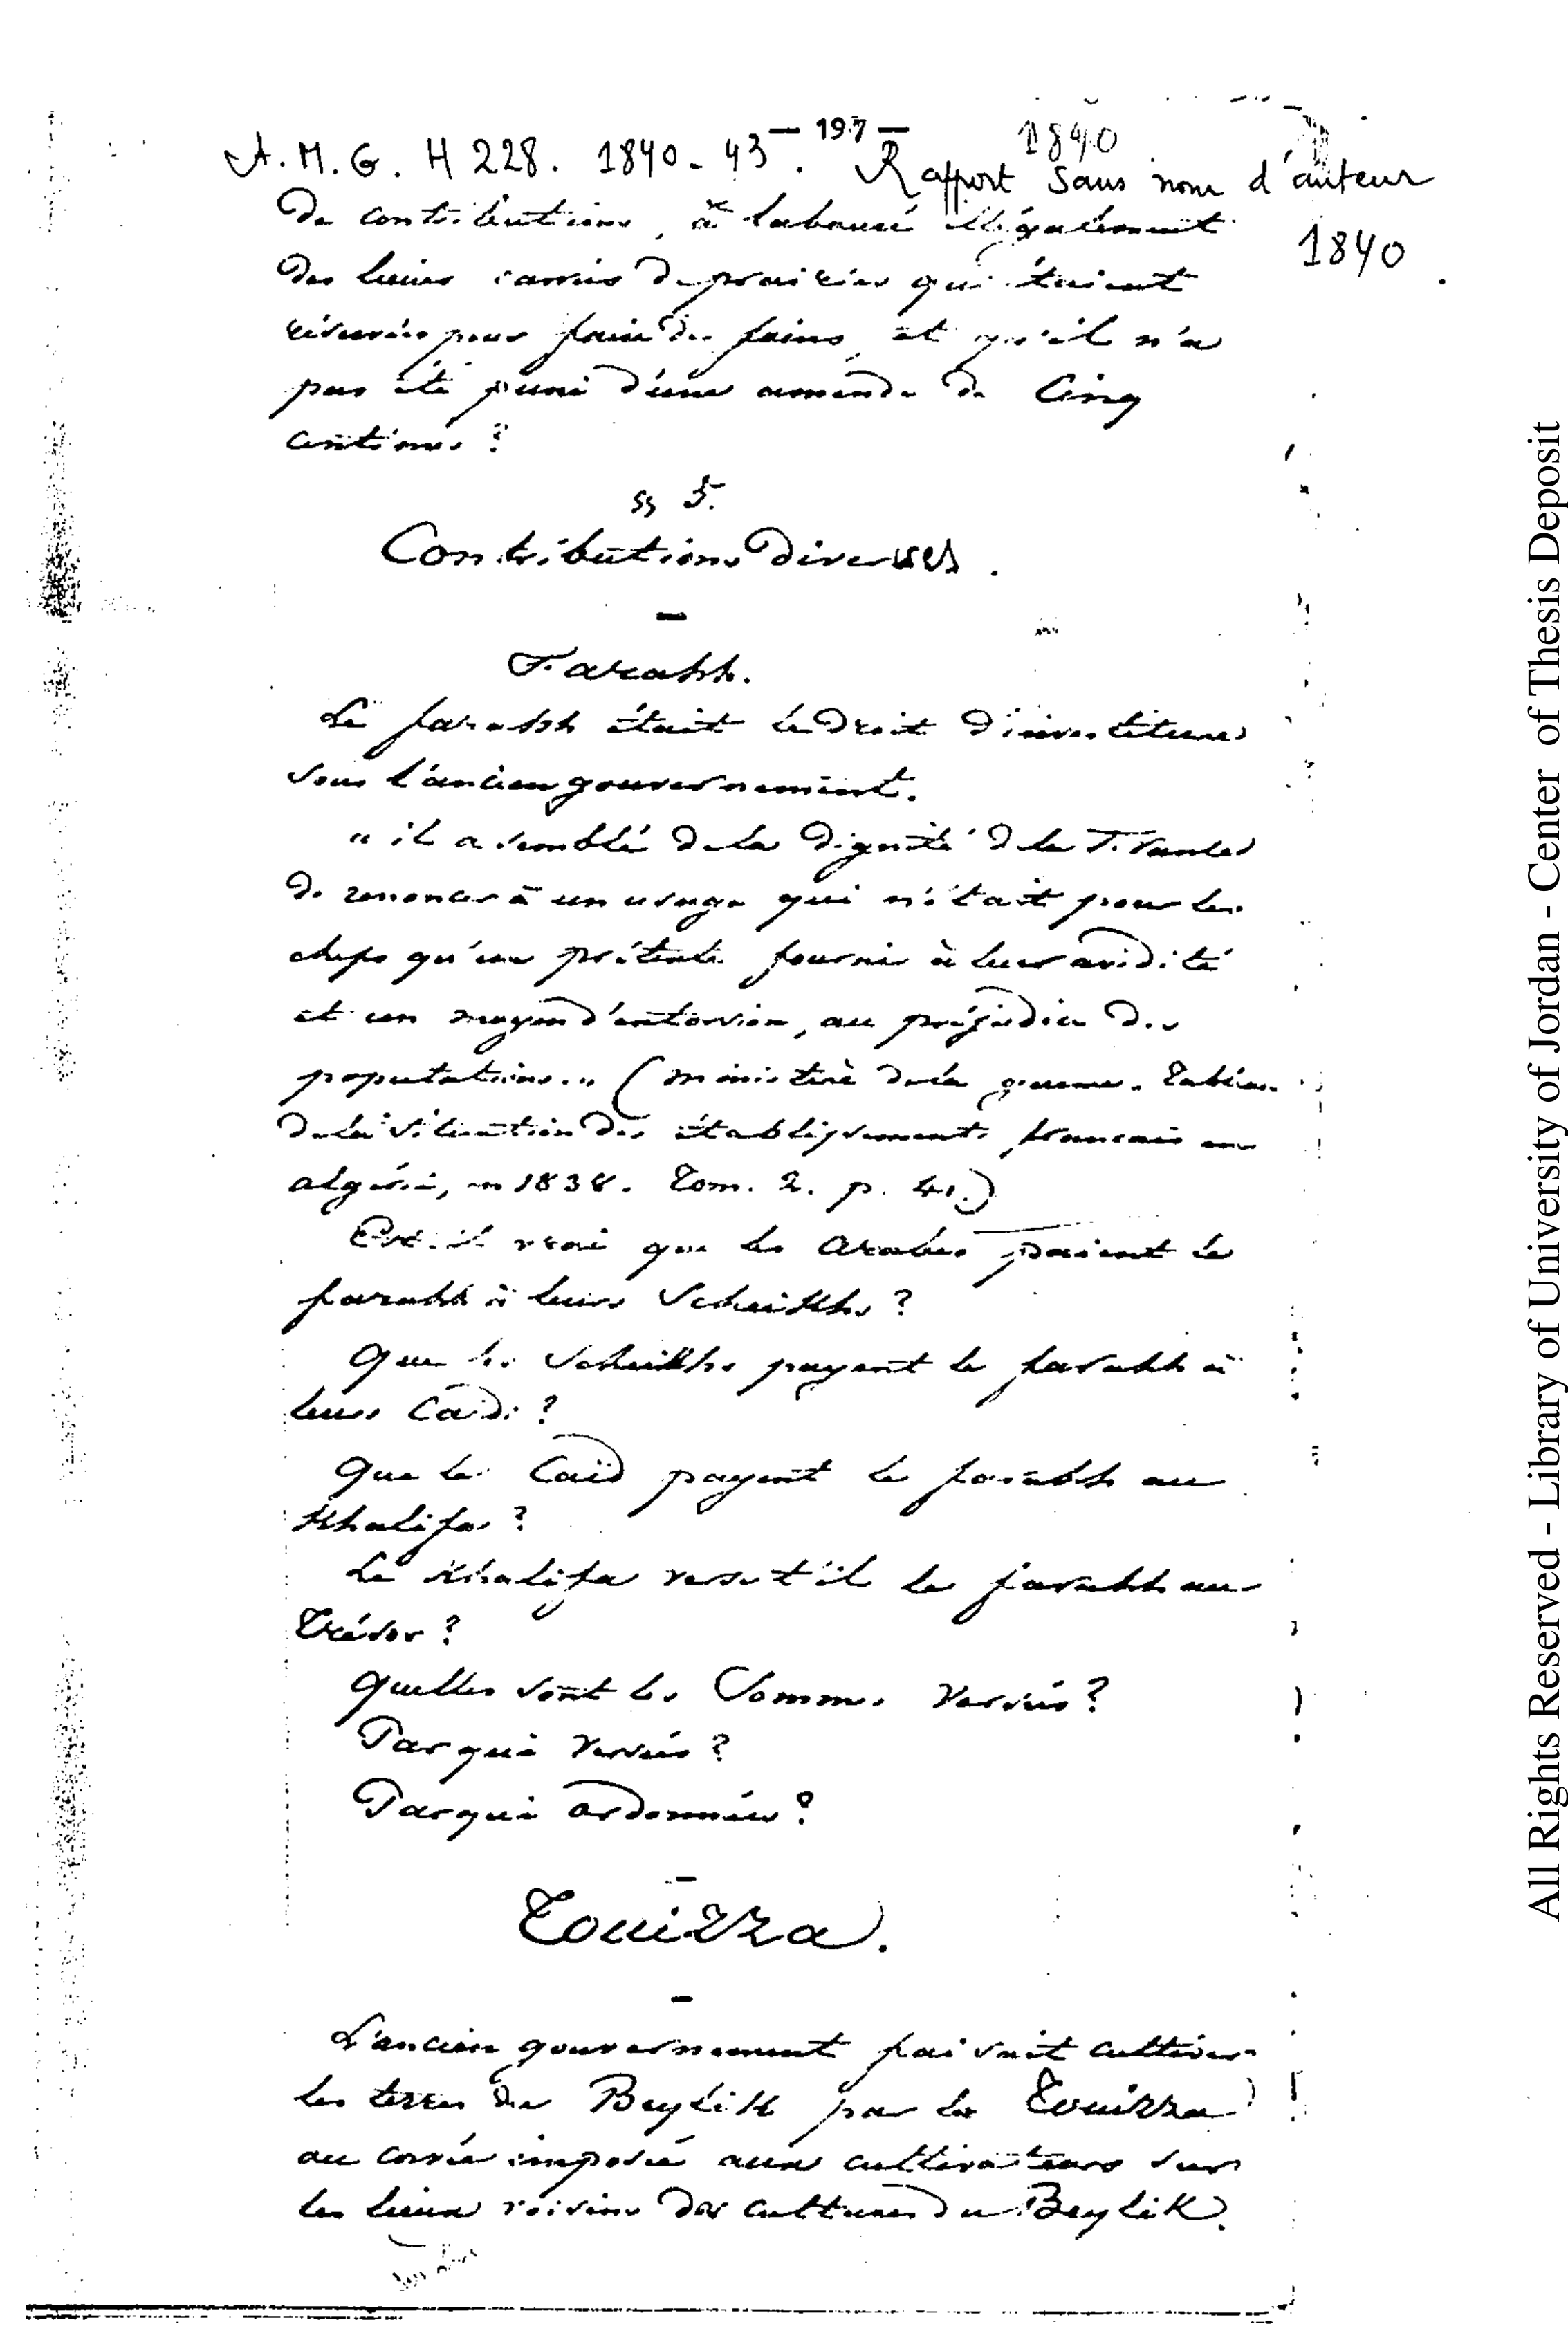 — 197 —
A. M. G. H 228. 1840-43. Rapport sans nom d'auteur
1840
1840.
de contributions, a labouré illégalement
des lieues carrées de prairies qui étaient
réservées pour faire des foins, et qu'il n'a
pas été puni d'une amende de cinq
centimes ?
§§ 5.
Contributions Diverses.
—
Farahh.
Le farahh était le droit d'investiture
sous l'ancien gouvernement.
" il a semblé de la dignité de la France
de renoncer à un usage qui n'était pour les
chefs qu'un prétexte fourni à leur avidité
et un moyen d'extorsion, au préjudice des
populations. " (ministère de la guerre. Tableau
de la situation des établissements français en
algérie, en 1838. Tom. 2. p. 41.)
Est-il vrai que les arabes paient le
farahh à leurs Scheikhs ?
Que les Scheikhs payent le farahh à
leurs Caïds ?
Que les Caïd payent le farahh au
Khalifa ?
Le Khalifa verse t'il le farahh au
Trésor ?
Quelles sont les Sommes versées ?
Par qui versées ?
Par qui ordonnées ?
—
Touizza.
—
L'ancien gouvernement faisait cultiver
les terres du Beylik par la Touizza
ou corvée imposée aux cultivateurs sur
les lieux voisins des cultures du Beylik.
All Rights Reserved - Library of University of Jordan - Center of Thesis Deposit